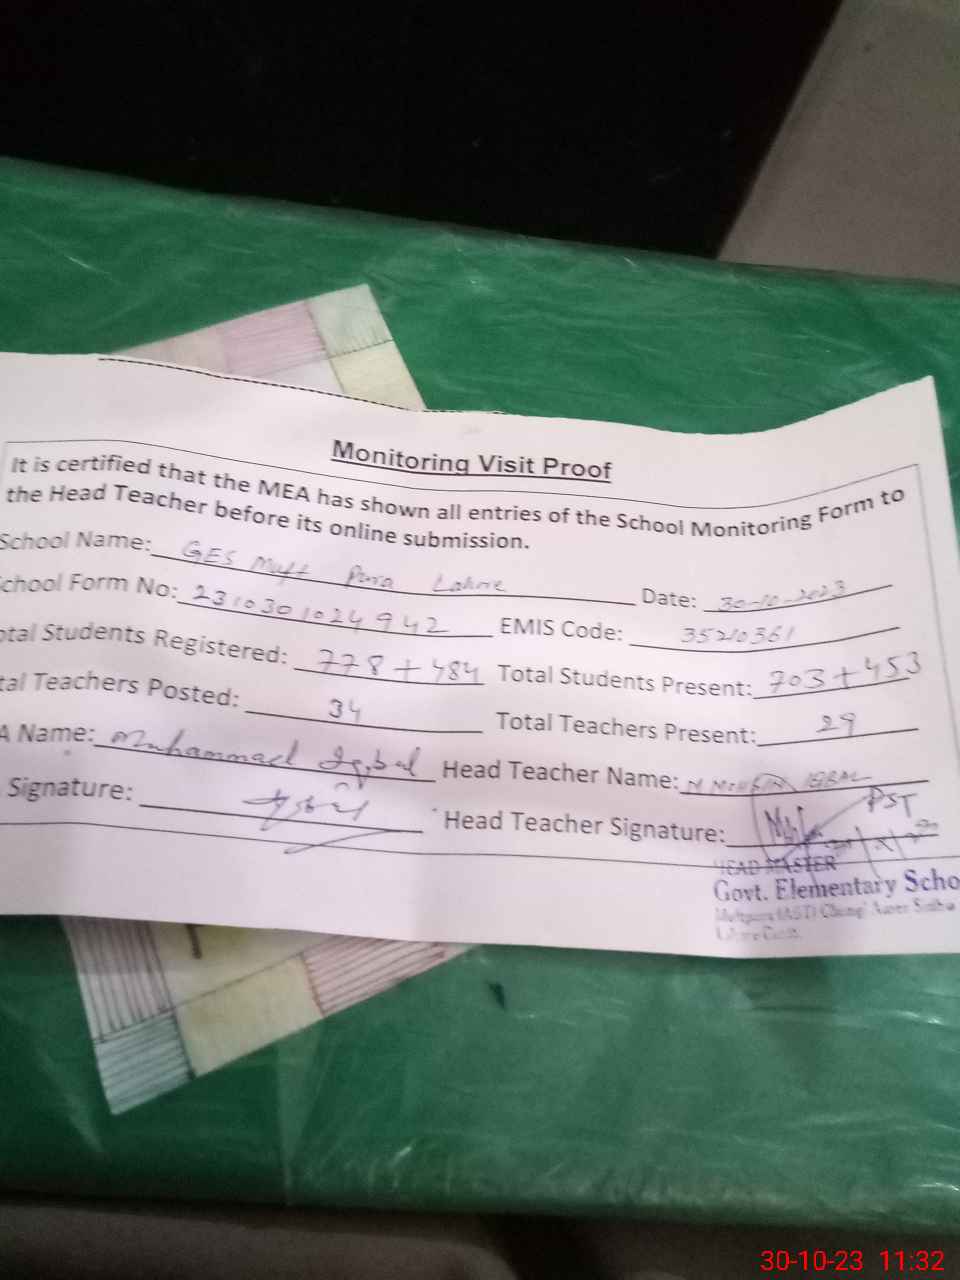 Monitoring Visit Proof
It is certified that the MEA has shown all entries of the School Monitoring Form to
the Head Teacher before its online submission.
School Name: GES Muft Pura Lahore Date: 30-10-2023
chool Form No: 2310301024942 EMIS Code: 35210361
otal Students Registered: 778+484 Total Students Present: 703+453
tal Teachers Posted: 34 Total Teachers Present: 29
A Name: Muhammad Iqbal Head Teacher Name: M MOHSIN IQBAL
Signature: Head Teacher Signature: PST
HEAD MASTER
Govt. Elementary Scho
30-10-23 11:32